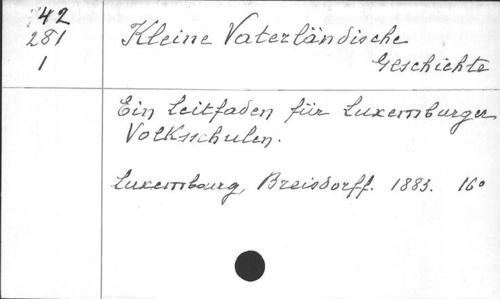 42
281
1
Kleine Vaterländische
Geschichte
Ein Leitfaden für Luxemburger
Volksschulen.
Luxembourg, Breisdorff. 1883. 16°